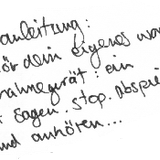 anleitung:
hör dein eigenes
nahmegerät: ein
sagen. stop. abspie
und anhören...